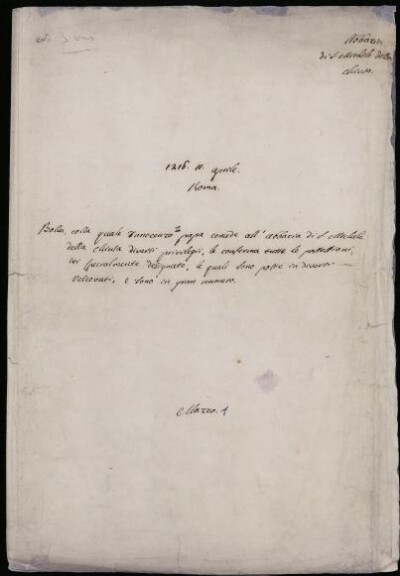 Abbazia
di S. Michele della
Chiusa.
1216. 11. aprile.
Roma.
Bolla, colla quale Innocenzo 3º papa concede all'abbazia di S. Michele
della Chiusa diversi privilegii, le conferma tutte le possessioni,
ivi specialmente designate, le quali sono poste in diversi
vescovati, e sono in gran numero.
Mazzo. 1